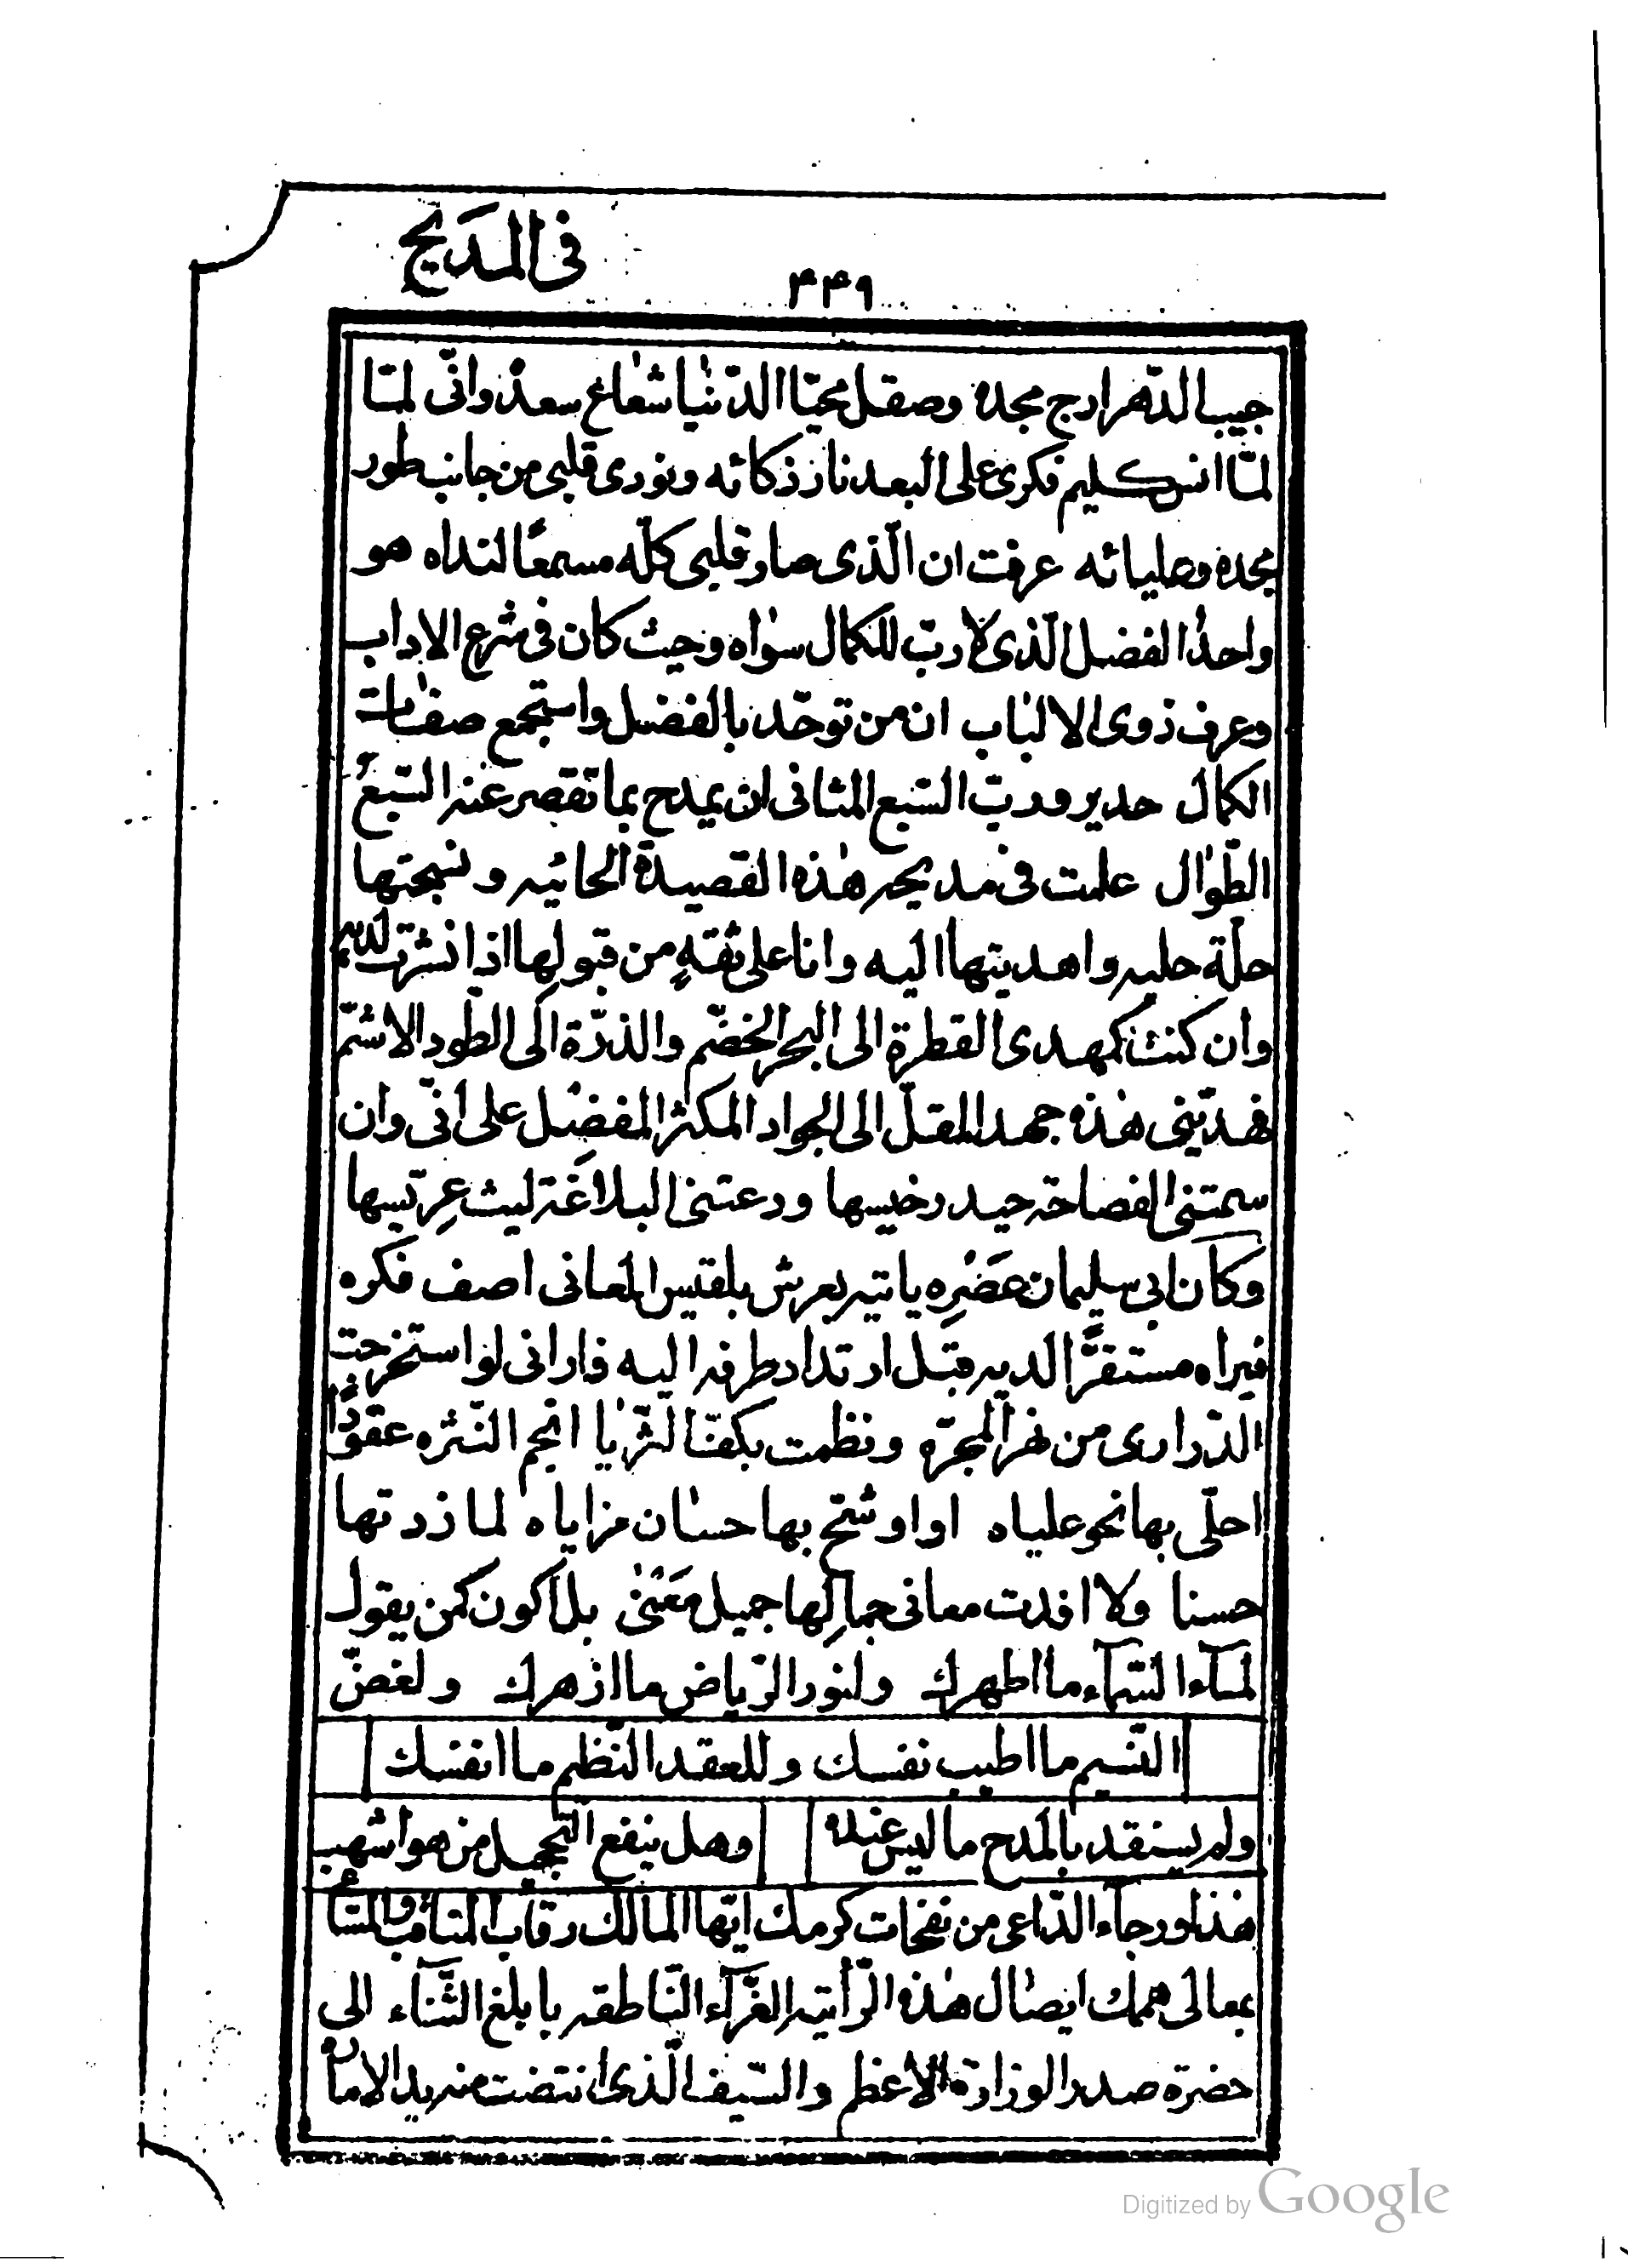 فی المدیح
۴۴۹
جیب الدّهر ارج مجده وصقل محیّا الدّنیا شعاع سعده وانّی لمّا
لمّا انس کلیم فکری علی البعد نار ذکائه ونودی قلبی من جانب طور
مجده وعلیائه عرفت ان الّذی صار قلبی کلّه مسمعًا لنداه هو
واحد الفضل الّذی لا ربّ للکمال سواه وحیث کان فی شرع الاداب
وعرف ذوی الالباب ان من توحّد بالفضل واستجمع صفات
الکمال جدیر وربّ السّبع المثانی ان یمدح بما تقصر عنه السّبعُ
الطّوال علمت فی مدیحه هذه القصیدة الحائیه ونسجتها
حلّة حلیه واهدیتها الیه وانا علی ثقةٍ من قبولها اذا نشرت لدیه
وان کنت کمهدی القطرة الی البحر الخضّم والذرّة الی الطّود الاشمّ
فهدیّتی هذه جهد المقلّ الی الجواد المکثر المفضل علی انّی وان
سمتنی الفصاحة حیدر خیسها ودعتنی البلاغة لیث عِرّیسها
وکأن ابی سلیمان عَصْرِه یاتیه بعرش بلقیس المعانی اصف فکره
فیراه مستقرًّا لدیه قبل ارتداد طرفه الیه فارانی لو استخرجت
الدّراری من نهر المجرّه ونظمت بکفّ الثّریّا انجم النّثره عقودًا
احلّی بها نحو علیاه او اوشّح بها حسان مزایاه لما زدتها
حسنا ولا افدت معانی جمالِها جمیل مَعْنیٰ بل اکون کمن یقول
لمآء السّمآء ما اطهرك ولنور الرّیاض ما ازهرك ولغضّ
النّسیم ما اطیب نفسك وللعقد النّظیم ما انفسك
ولم یستفد بالمدح ما لیس عنده
وهل ینفع التّحجیل من هو اشهب
هذا ورجاء الدّاعی من نفحات کرمك ایّها المالك رقاب المناقب والمساعی
بمعالی هممك ایصال هذه الرّأئیة الغرّآء النّاطقه بابلغ الثّنآء الی
حضرة صدر الوزارة الاعظم والسّیف الّذی انتضت منه ید الامامة